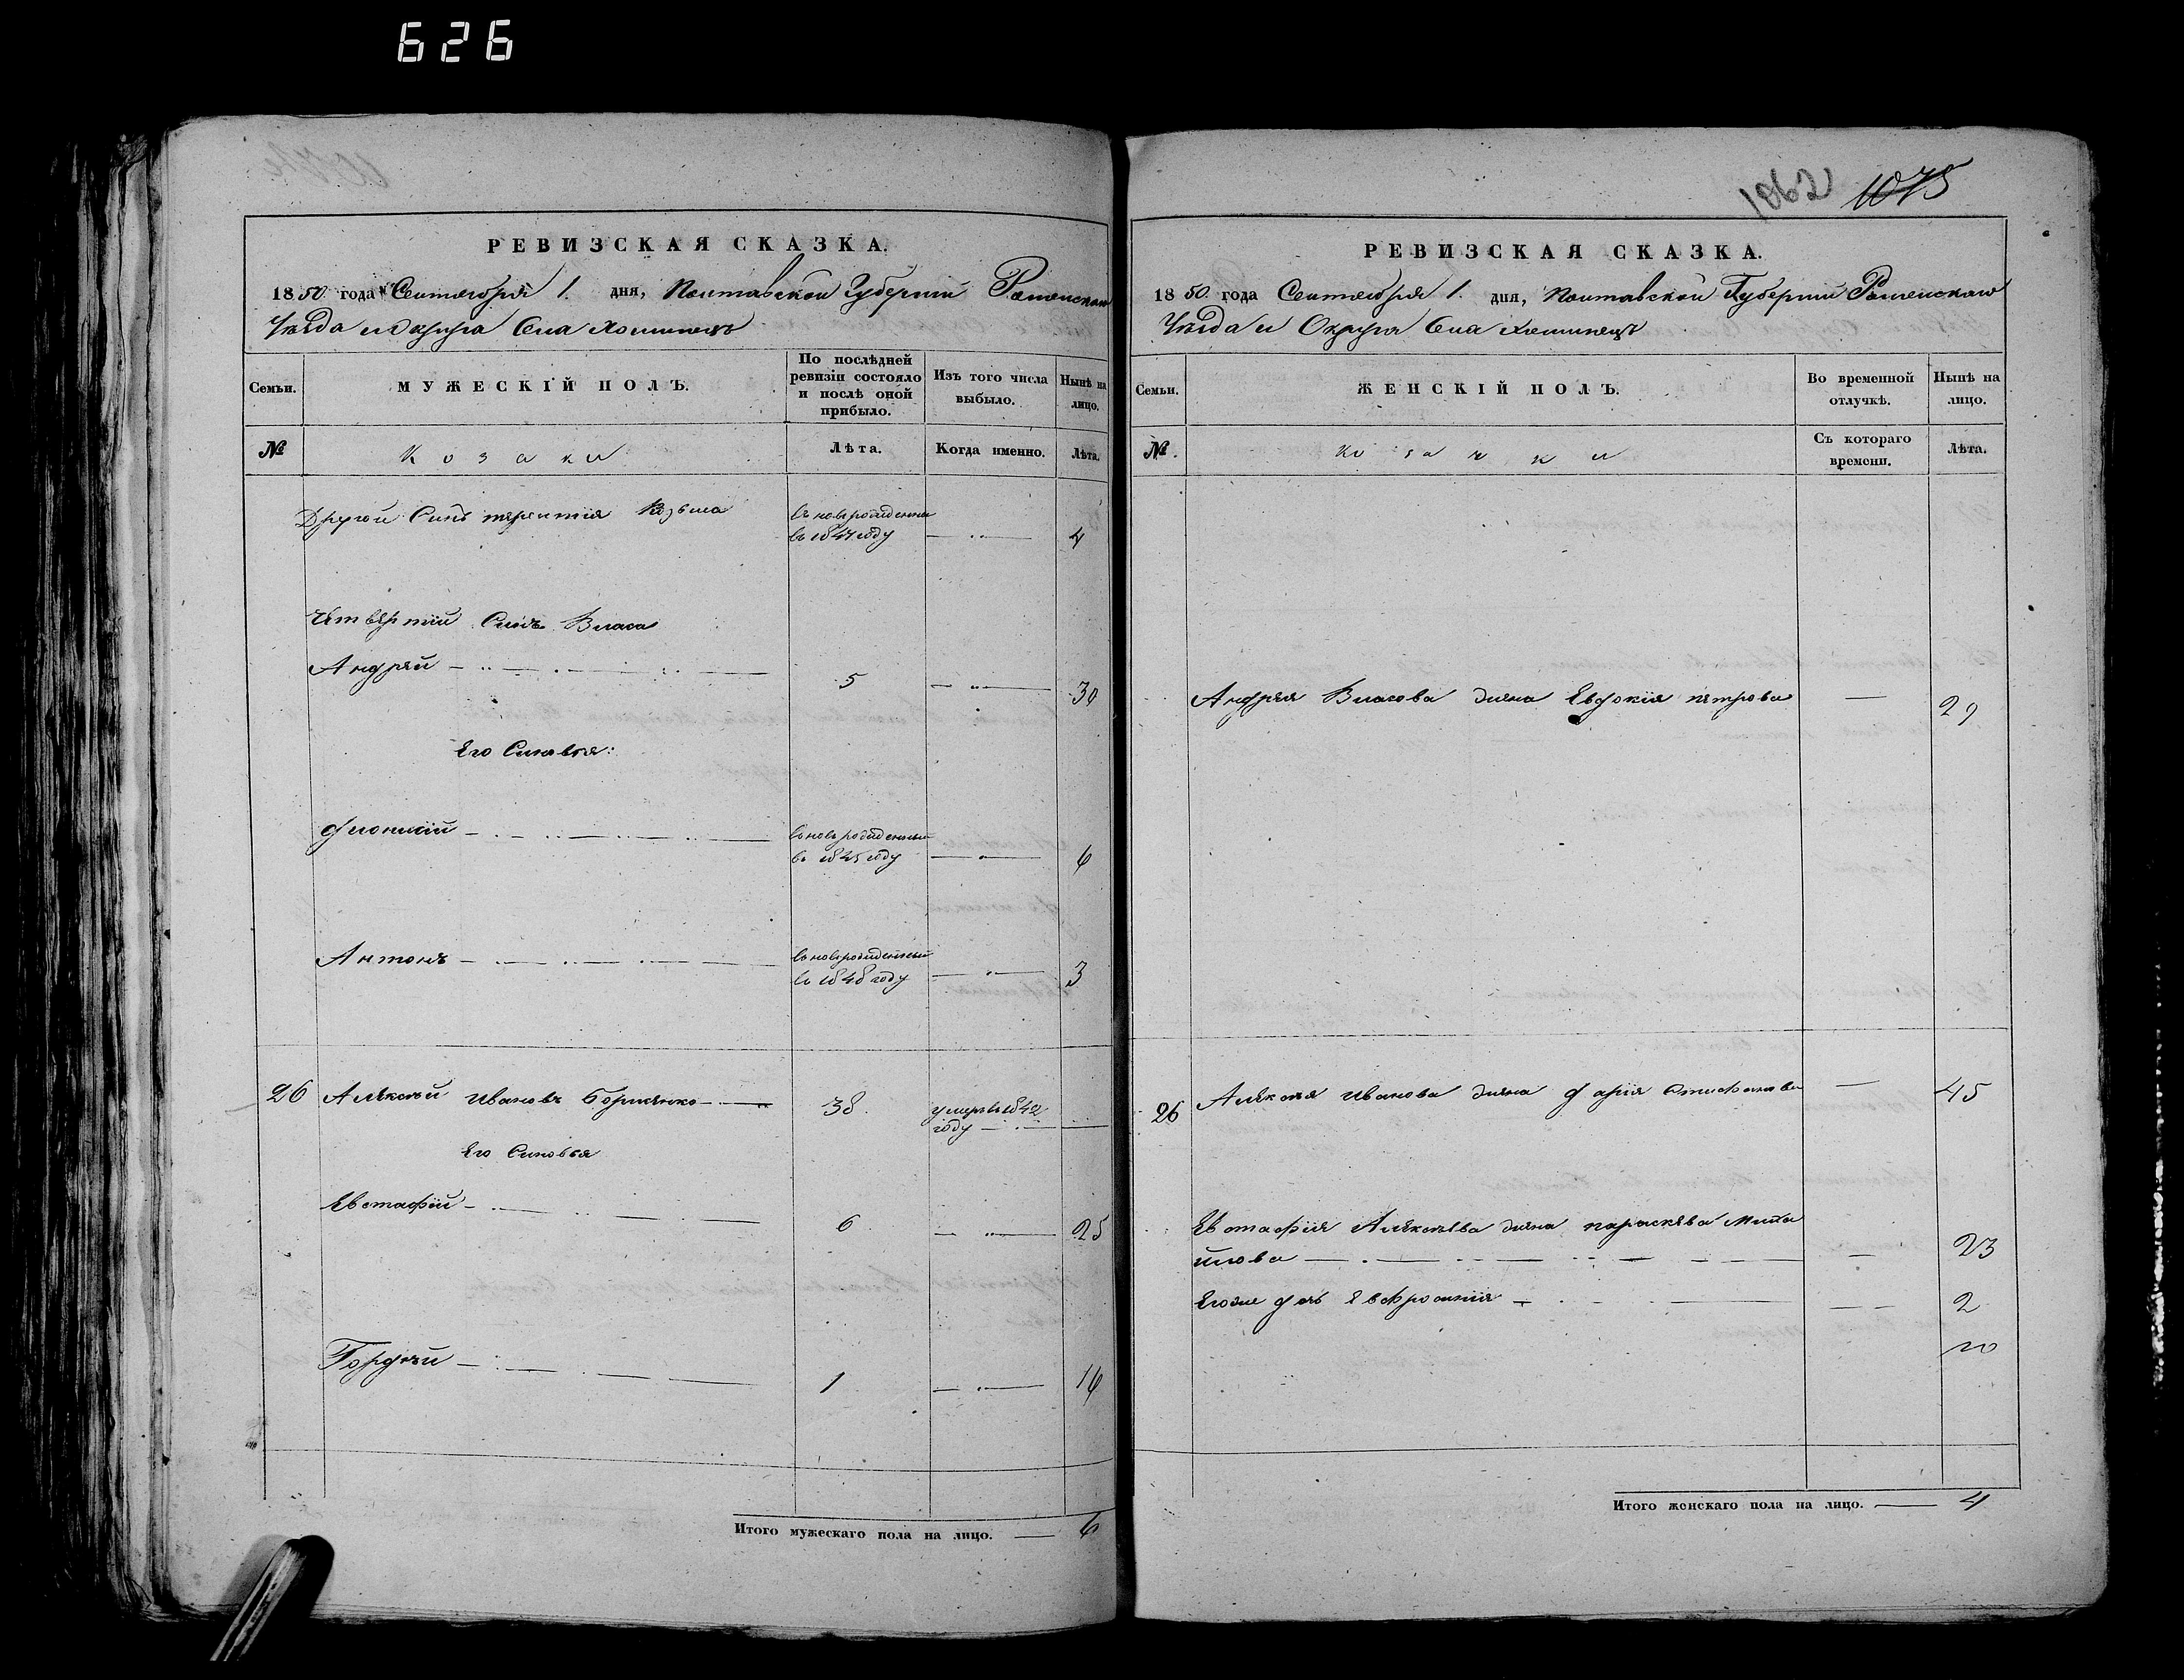 626
РЕВИЗСКАЯ СКАЗКА.
1850 года Сентября 1. дня, Полтавской Губернии Роменскаго
Уезда и Округа Села Хоминецъ
Семьи.
МУЖЕСКІЙ ПОЛЪ.
По послѣдней ревизіи состояло и послѣ оной прибыло.
Изъ того числа выбыло.
Нынѣ на лицо.
№
Козаки
Лѣта.
Когда именно.
Лѣта.
Другой Синъ терентія Козьма
въ 1847 году
4
Четвертій Синъ Власа
Андрей
5
30
Его Синовья:
Дионисій
въ 1845 году
6
Антонъ
въ 1848 году
3
26 Алексѣй Ивановъ
38
умеръ въ 1842
году
Его Синовья
Евстафій
6
25
Гордѣй
1
Итого мужескаго пола на лицо. 6
1062 1075
РЕВИЗСКАЯ СКАЗКА.
1850 года Сентября 1. дня, Полтавской Губернии Роменскаго
Уезда и Округа Села Хоминецъ
Семьи.
ЖЕНСКІЙ ПОЛЪ.
Во временной отлучкѣ.
Нынѣ на лицо.
№.
Козачки
Съ котораго времени.
Лѣта.
Андрея Власова жена Евдокія петрова
29
26 Алексѣя Иванова жена Дарія Стифанова
45
Евстафія Алексѣева жена параскева Миха
йлова
23
Егоже дочь Евфросинія
2
Итого женскаго пола на лицо. 4